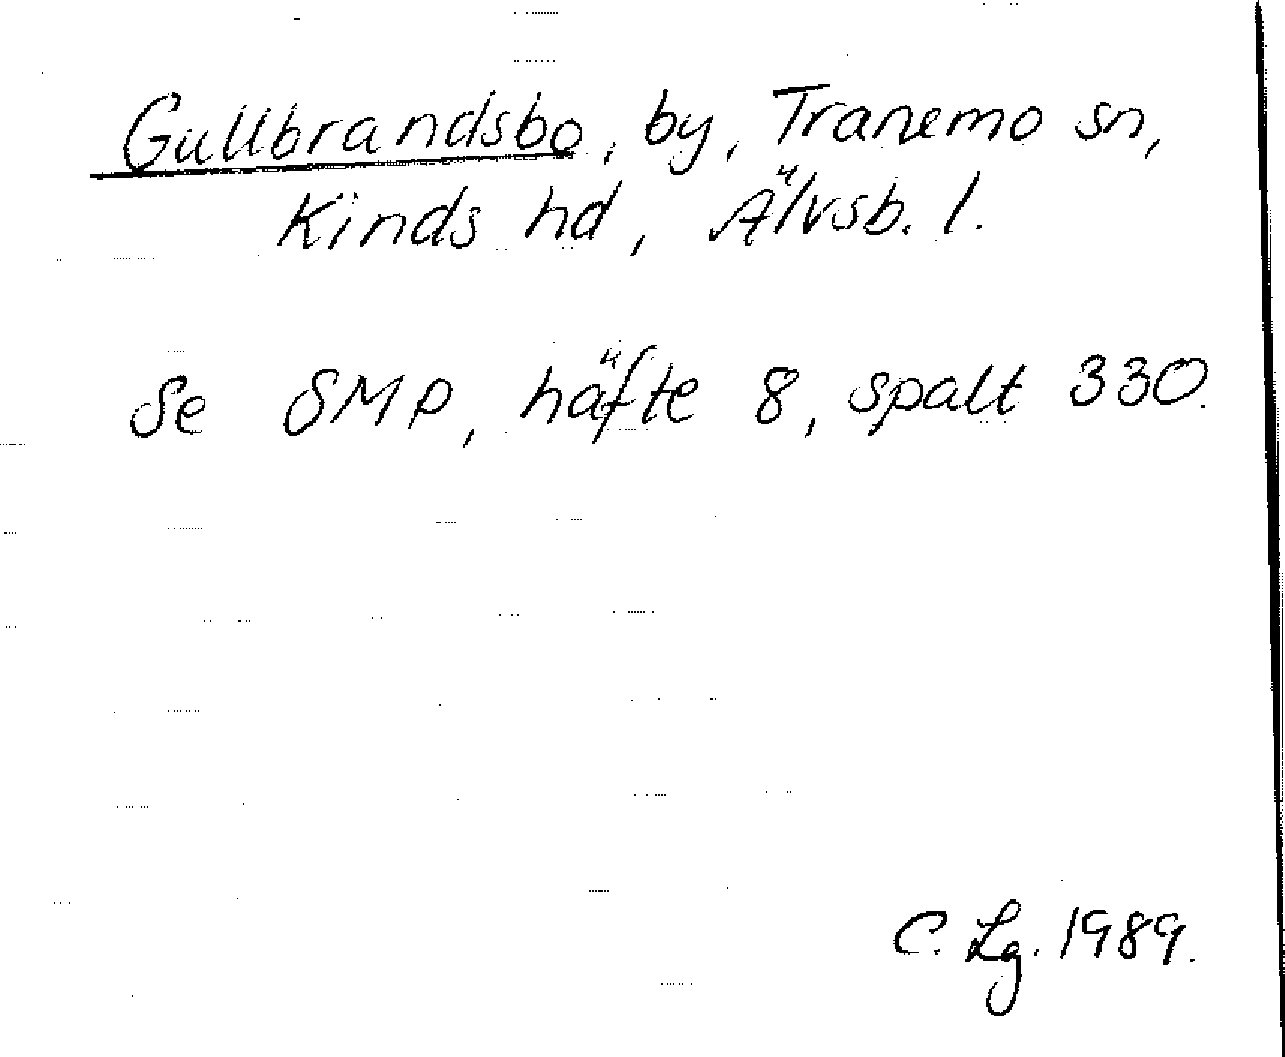 Gullbrandsbo, by, Tranemo sn,
Kinds hd, Älvsb. l.
Se SMP, häfte 8, spalt 330.
C. Lg. 1989.